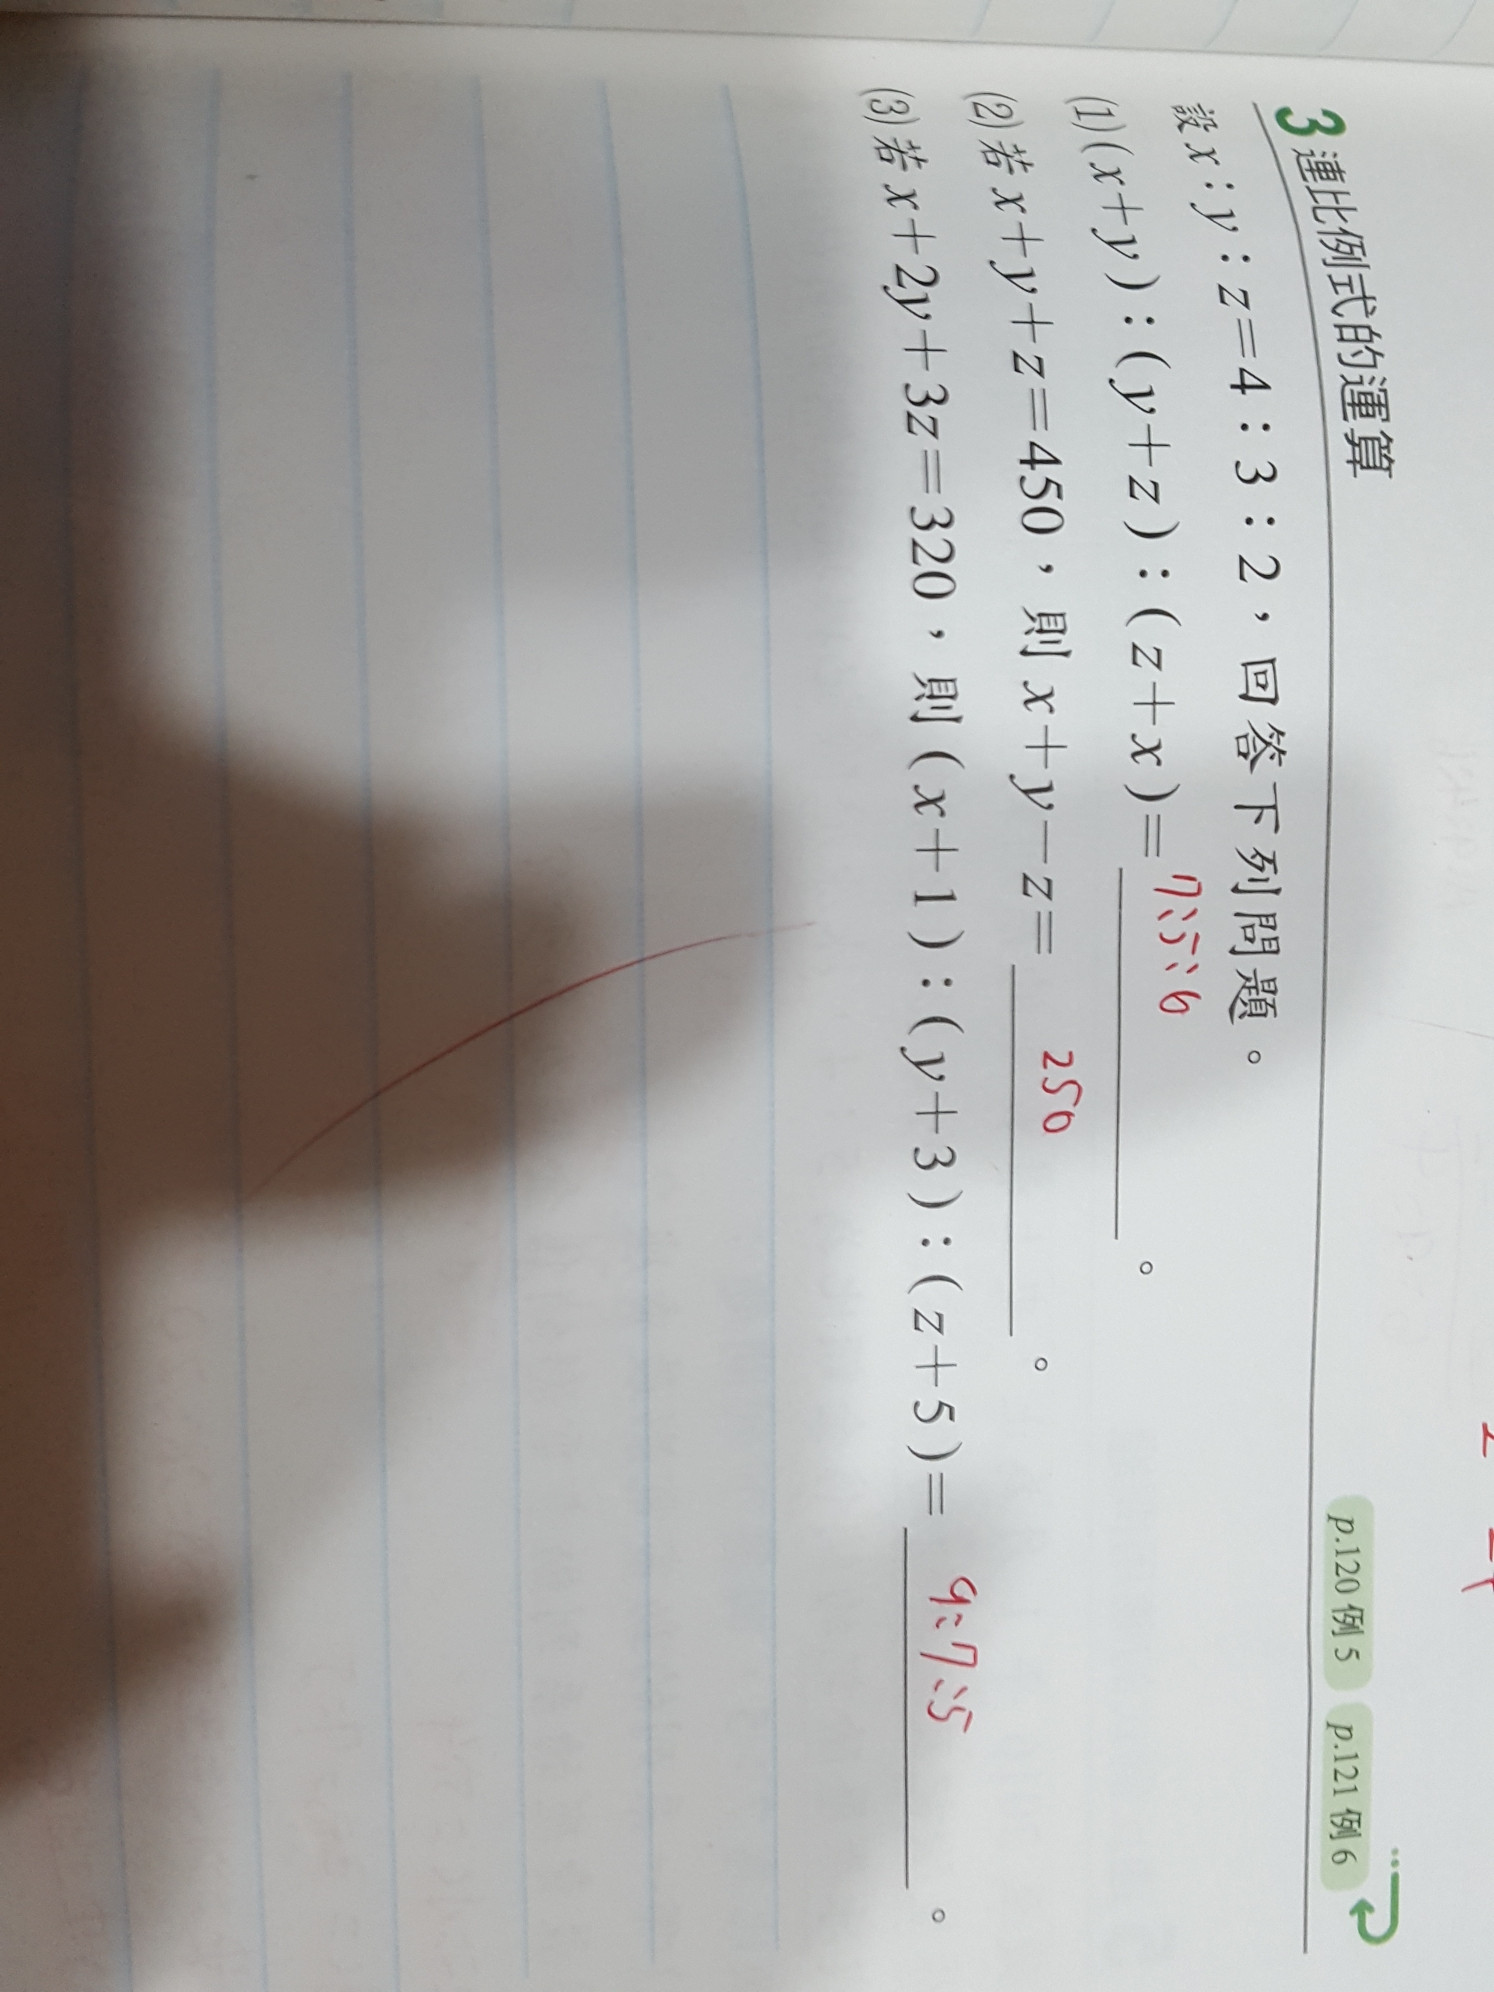 3 連比例式的運算 p.120 例 5 p.121 例 6
設 x:y:z=4:3:2,回答下列問題。
(1) (x+y):(y+z):(z+x)= 7:5:6 。
(2) 若 x+y+z=450,則 x+y-z= 250 。
(3) 若 x+2y+3z=320,則 (x+1):(y+3):(z+5)= 9:7:5 。